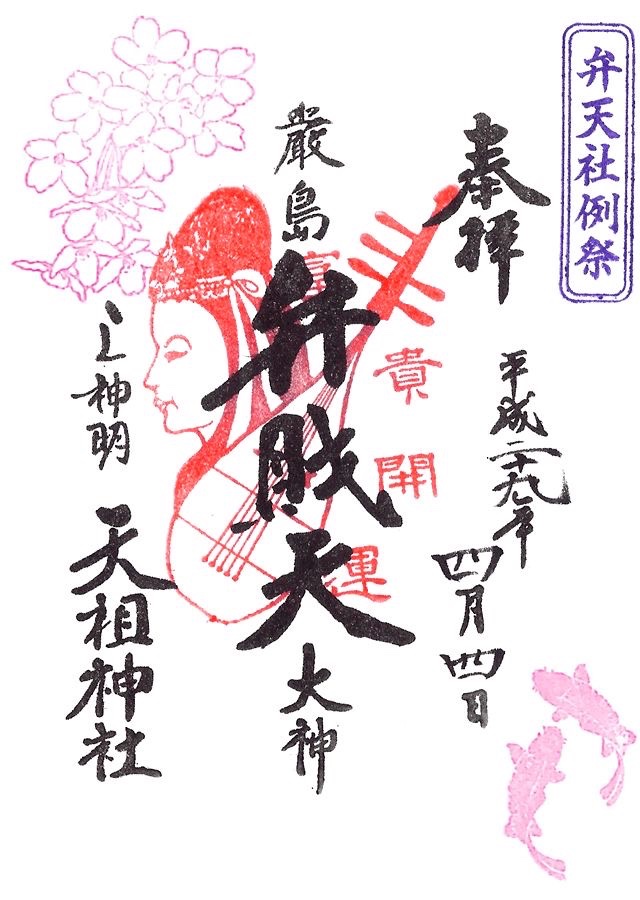 弁天社例祭
奉拝
平成二十九年
四月四日
富貴開運
厳島
弁財天
大神
上神明
天祖神社